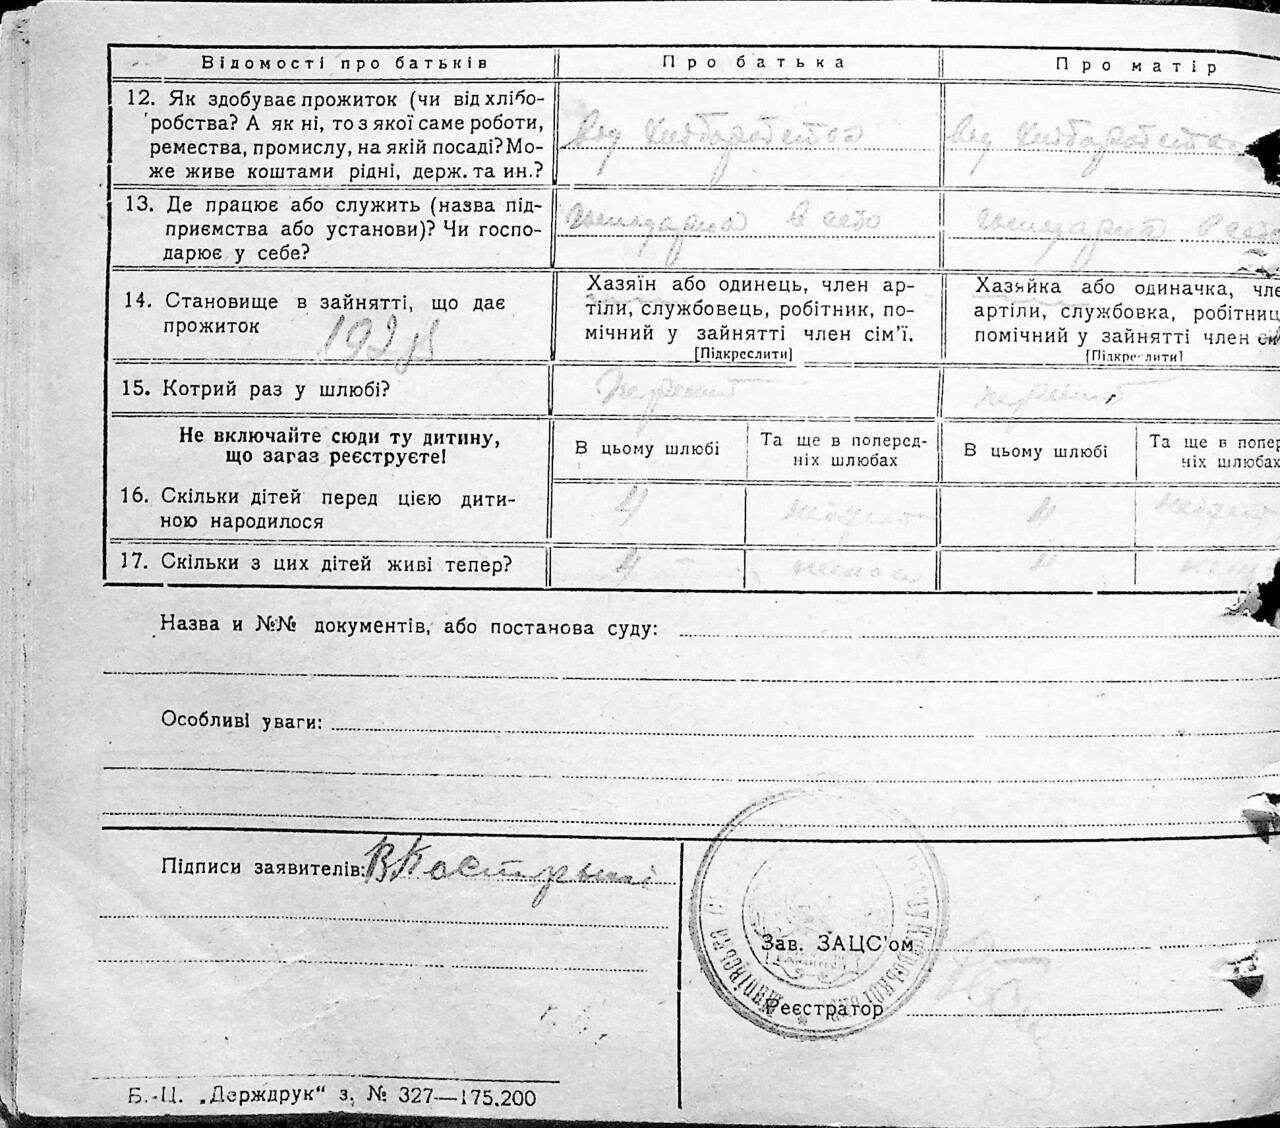 Відомості про батьків
Про батька
Про матір
12. Як здобуває прожиток (чи від хлібо-
робства? А як ні, то з якої саме роботи,
ремества, промислу, на якій посаді? Мо-
же живе коштами рідні, держ. та ин.?
13. Де працює або служить (назва під-
приємства або установи)? Чи госпо-
дарює у себе?
в себе
в себе
14. Становище в зайнятті, що дає
прожиток
Хазяїн або одинець, член ар-
тіли, службовець, робітник, по-
мічний у зайнятті член сім'ї.
[Підкреслити]
Хазяйка або одиначка, чле
артіли, службовка, робітниц
помічний у зайнятті член сім
[Підкреслити]
15. Котрий раз у шлюбі?
перший
перший
Не включайте сюди ту дитину,
що загаз реєструєте!
В цьому шлюбі
Та ще в поперед-
ніх шлюбах
В цьому шлюбі
Та ще в попер
ніх шлюбах
16. Скільки дітей перед цією дити-
ною народилося
4
4
17. Скільки з цих дітей живі тепер?
4
4
Назва и №№ документів, або постанова суду:
Особливі уваги:
Підписи заявителів:
Зав. ЗАЦС'ом
Реєстратор
Б.-Ц. „Держдрук" з. № 327—175.200